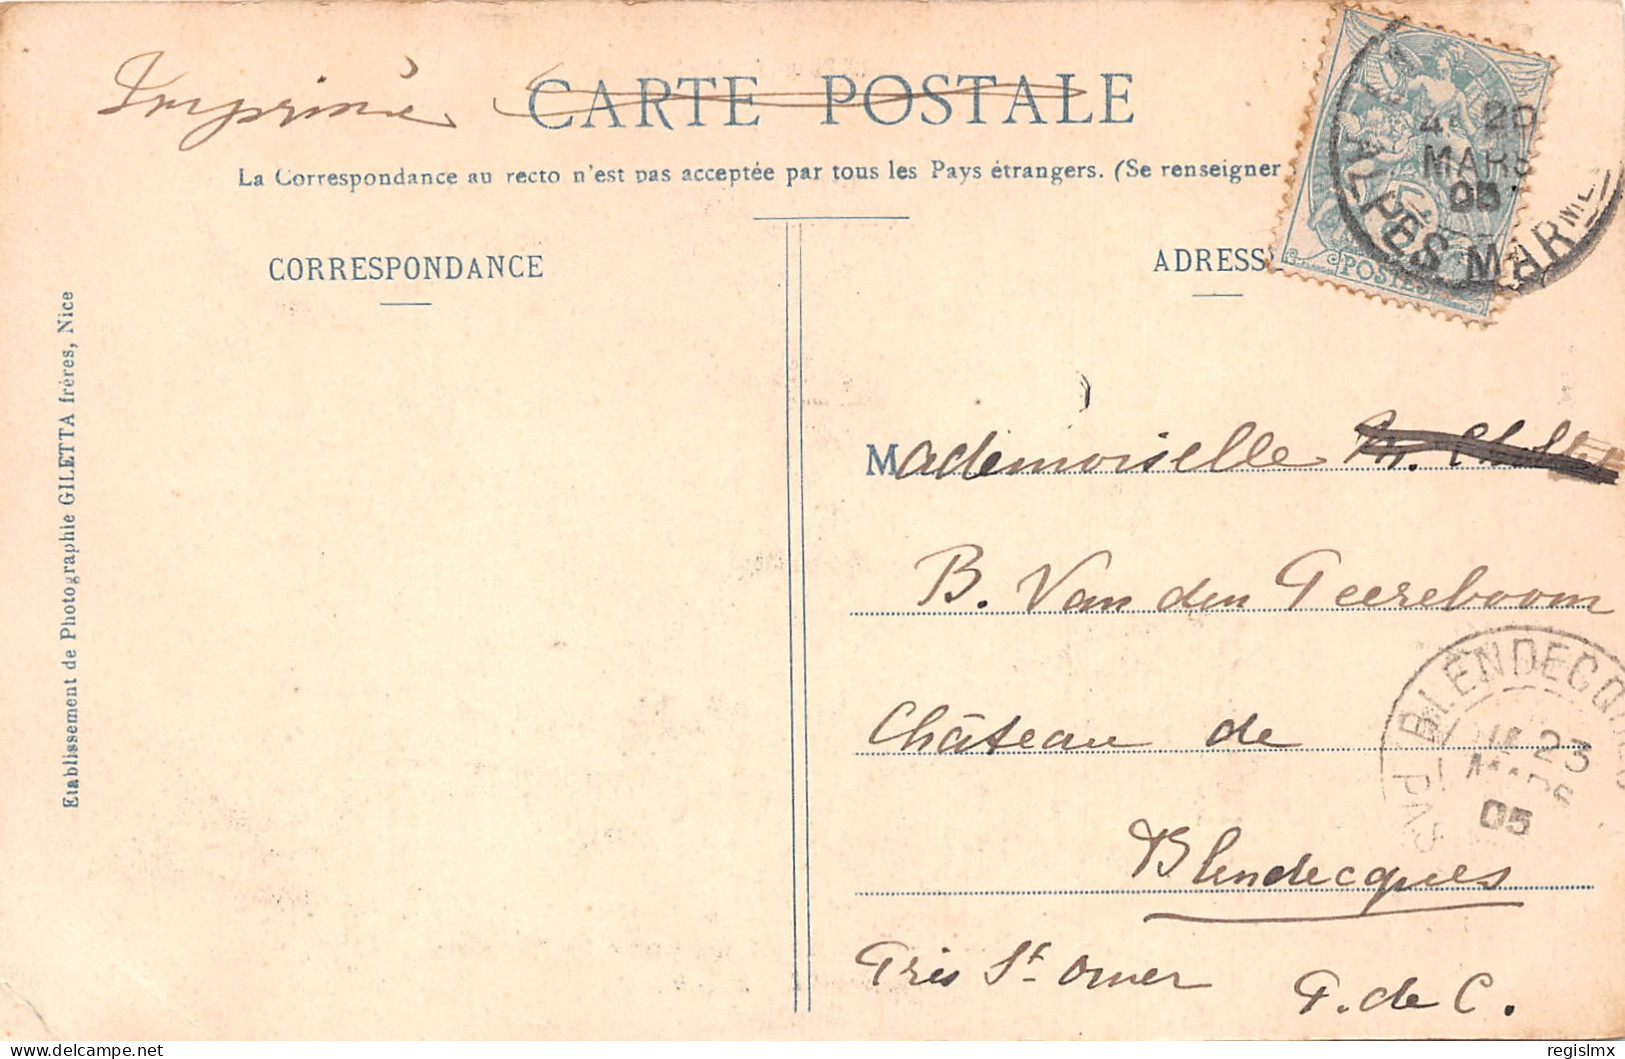 Imprimé
CARTE POSTALE
La Correspondance au recto n'est pas acceptée par tous les Pays étrangers. (Se renseigner
CORRESPONDANCE
ADRESSE
Etablissement de Photographie GILETTA frères, Nice
POSTES
20
MARS
05
ALPES MARMES
Mademoiselle
B. Van den Peereboom
Château de
Blendecques
Près St Omer
P. de C.
BLENDECQUES
23
MARS
05
PAS
regislmx